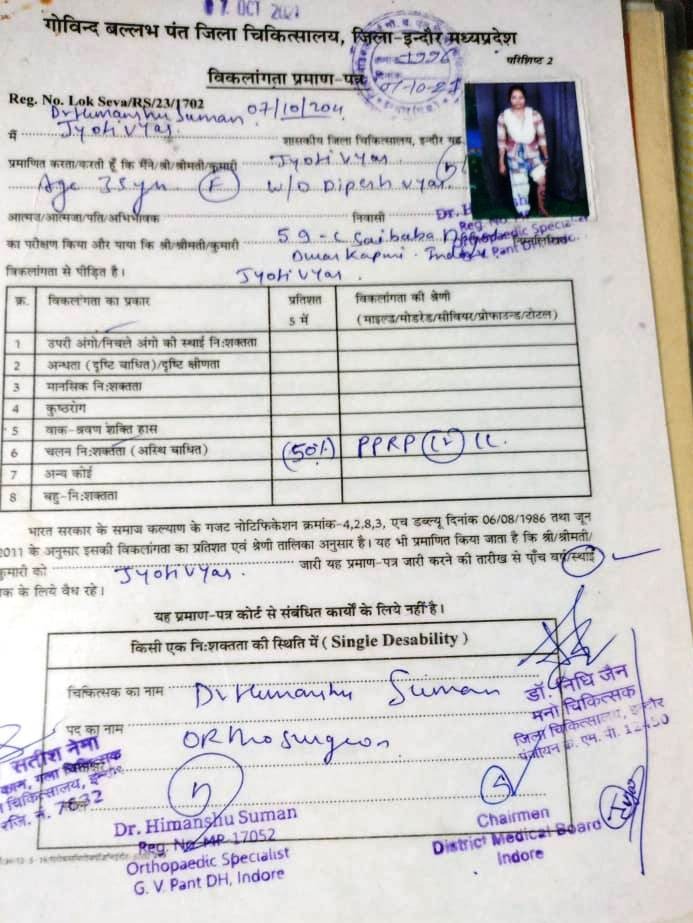 07 OCT 2021
गोविन्द बल्लभ पंत जिला चिकित्सालय, जिला-इन्दौर मध्यप्रदेश
1996
परिशिष्ट 2
विकलांगता प्रमाण-पत्र
07-10-21
Reg. No. Lok Seva/RS/23/1702
Dr Himanshu Suman 07/10/2021
मैं Jyoti Vyas शासकीय जिला चिकित्सालय, इन्दौर
प्रमाणित करता/करती हूँ कि मैंने/श्री/श्रीमती/कुमारी Jyoti Vyas
Age 35 yrs (F) W/O Dipesh Vyas
आत्मज/आत्मजा/पति/अभिभावक निवासी
का परीक्षण किया और पाया कि श्री/श्रीमती/कुमारी 59-C Saibaba Nagar
Dwarkapuri Indore
विकलांगता से पीड़ित है। Jyoti Vyas
क्र. विकलांगता का प्रकार प्रतिशत 5 में विकलांगता की श्रेणी
(माइल्ड/मोडरेड/सीवियर/प्रोफाउन्ड/टोटल)
1 उपरी अंगो/निचले अंगो की स्थाई नि:शक्तता
2 अन्धता (दृष्टि बाधित)/दृष्टि क्षीणता
3 मानसिक नि:शक्तता
4 कुष्ठरोग
5 वाक-श्रवण शक्ति हास
6 चलन नि:शक्तता (अस्थि बाधित) (50%) PPRP (Lt) LL.
7 अन्य कोई
8 बहु-नि:शक्तता
भारत सरकार के समाज कल्याण के गजट नोटिफिकेशन क्रमांक-4,2,8,3, एच डब्ल्यू दिनांक 06/08/1986 तथा जून
2011 के अनुसार इसकी विकलांगता का प्रतिशत एवं श्रेणी तालिका अनुसार है। यह भी प्रमाणित किया जाता है कि श्री/श्रीमती/
कुमारी को Jyoti Vyas. जारी यह प्रमाण-पत्र जारी करने की तारीख से पाँच वर्ष/स्थाई
क के लिये वैध रहे।
यह प्रमाण-पत्र कोर्ट से संबंधित कार्यों के लिये नहीं है।
किसी एक नि:शक्तता की स्थिति में ( Single Desability )
चिकित्सक का नाम Dr Himanshu Suman
पद का नाम Orthosurgeon
डॉ. निधि जैन
मनो चिकित्सक
जिला चिकित्सालय, इन्दौर
पंजीयन क्र. एम. पी. 12450
सतीश नेमा
कान, गला चिकित्सक
चिकित्सालय, इन्दौर
रजि. न. 7632
Dr. Himanshu Suman
Reg. No MP-17052
Orthopaedic Specialist
G. V. Pant DH, Indore
Chairmen
District Medical Board
Indore